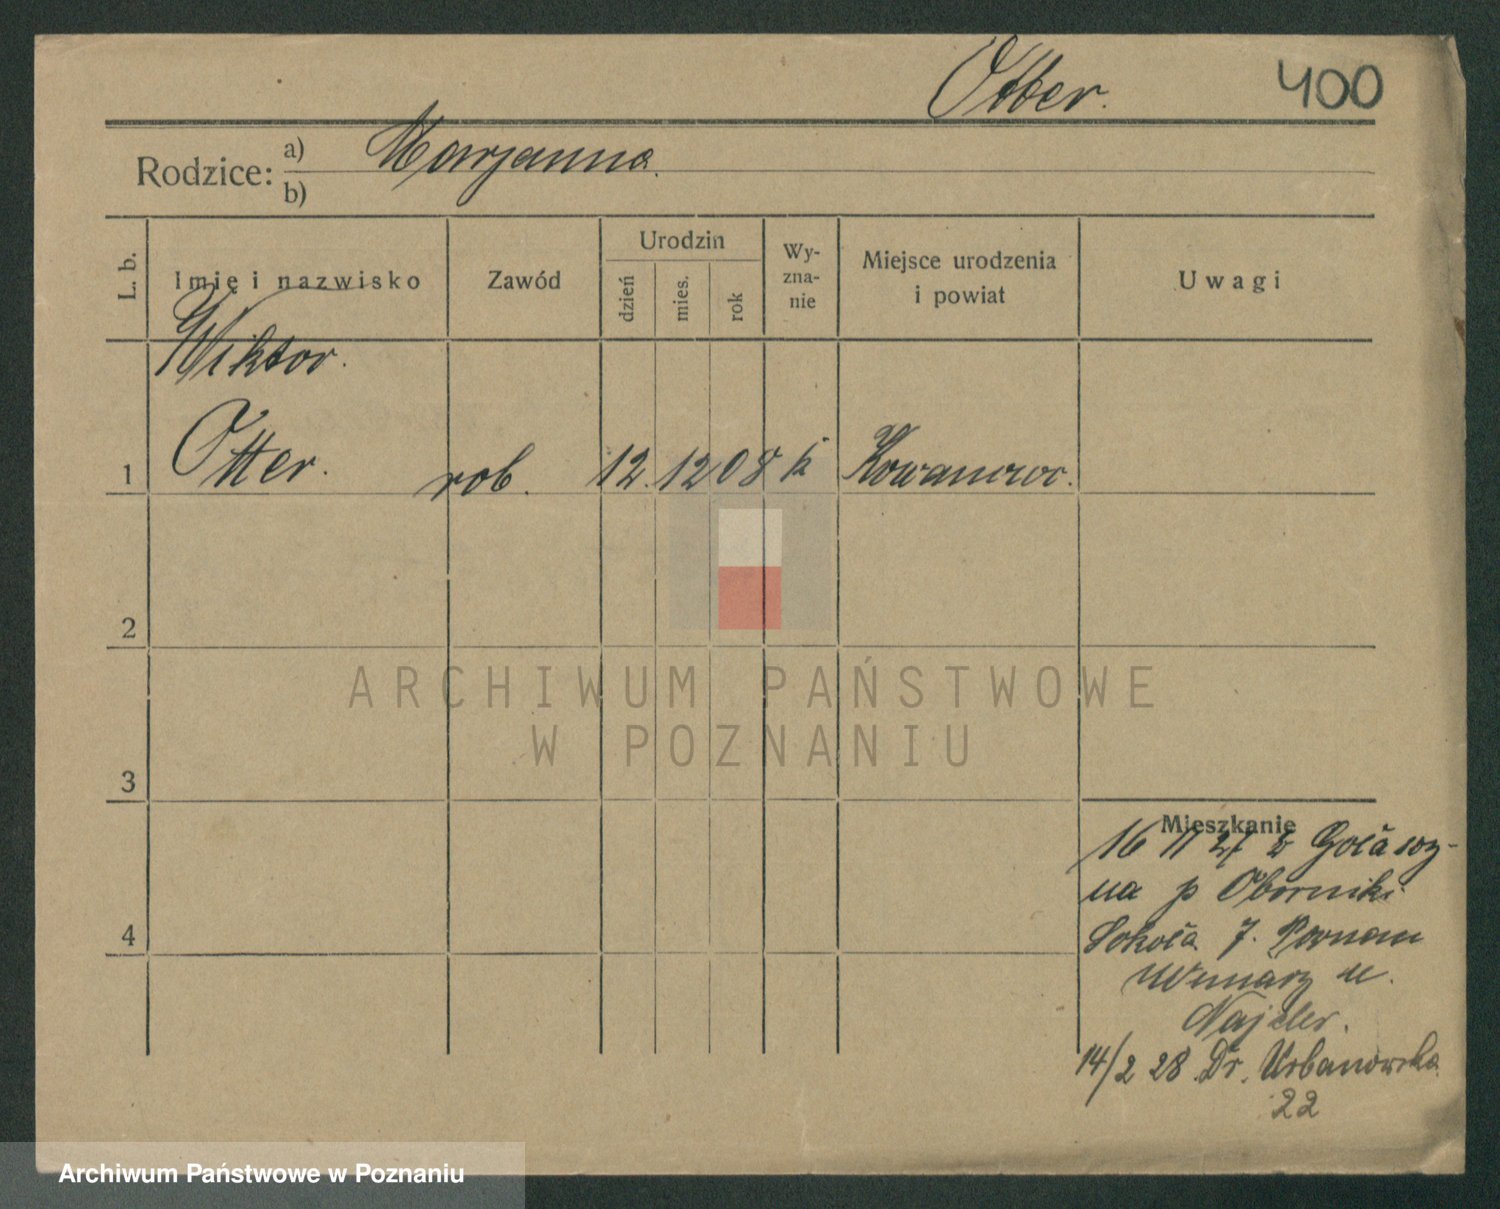 Otter.
400
Rodzice: a) Marjanna.
b)
L. b.
Imię i nazwisko
Zawód
Urodzin
dzień
mies.
rok
Wy-
zna-
nie
Miejsce urodzenia
i powiat
Uwagi
Wiktor.
1 Otter. rob. 12. 12 08 k Kowanowo.
2
3
4
ARCHIWUM PAŃSTWOWE
W POZNANIU
Mieszkanie
16 11 27 z
na p Oborniki
Sokoła 7.
Najder.
14/2 28 Dr. Urbanowska
22
Archiwum Państwowe w Poznaniu